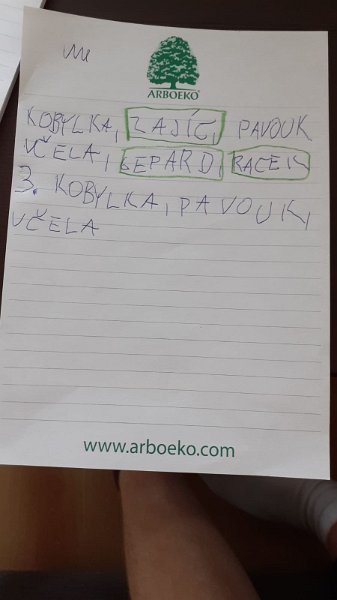 ARBOEKO
KOBYLKA, ZAJÍC, PAVOUK
VČELA, GEPARD, RACEK
3. KOBYLKA, PAVOUK,
VČELA
www.arboeko.com